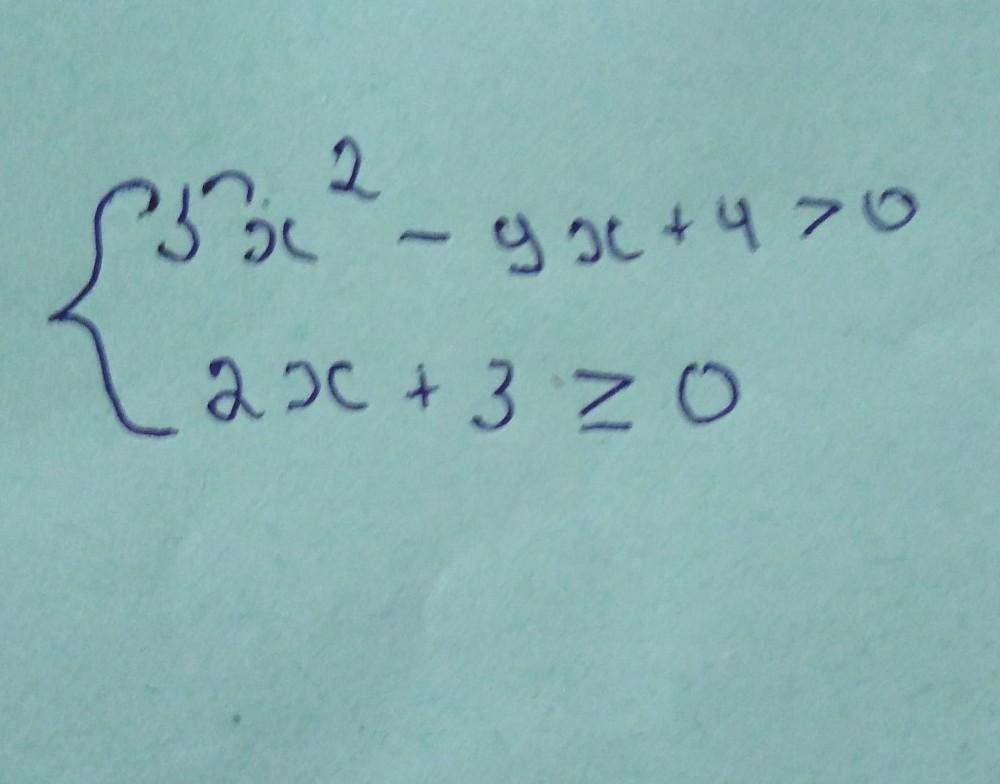 5x² - 9x + 4 > 0
2x + 3 ≥ 0